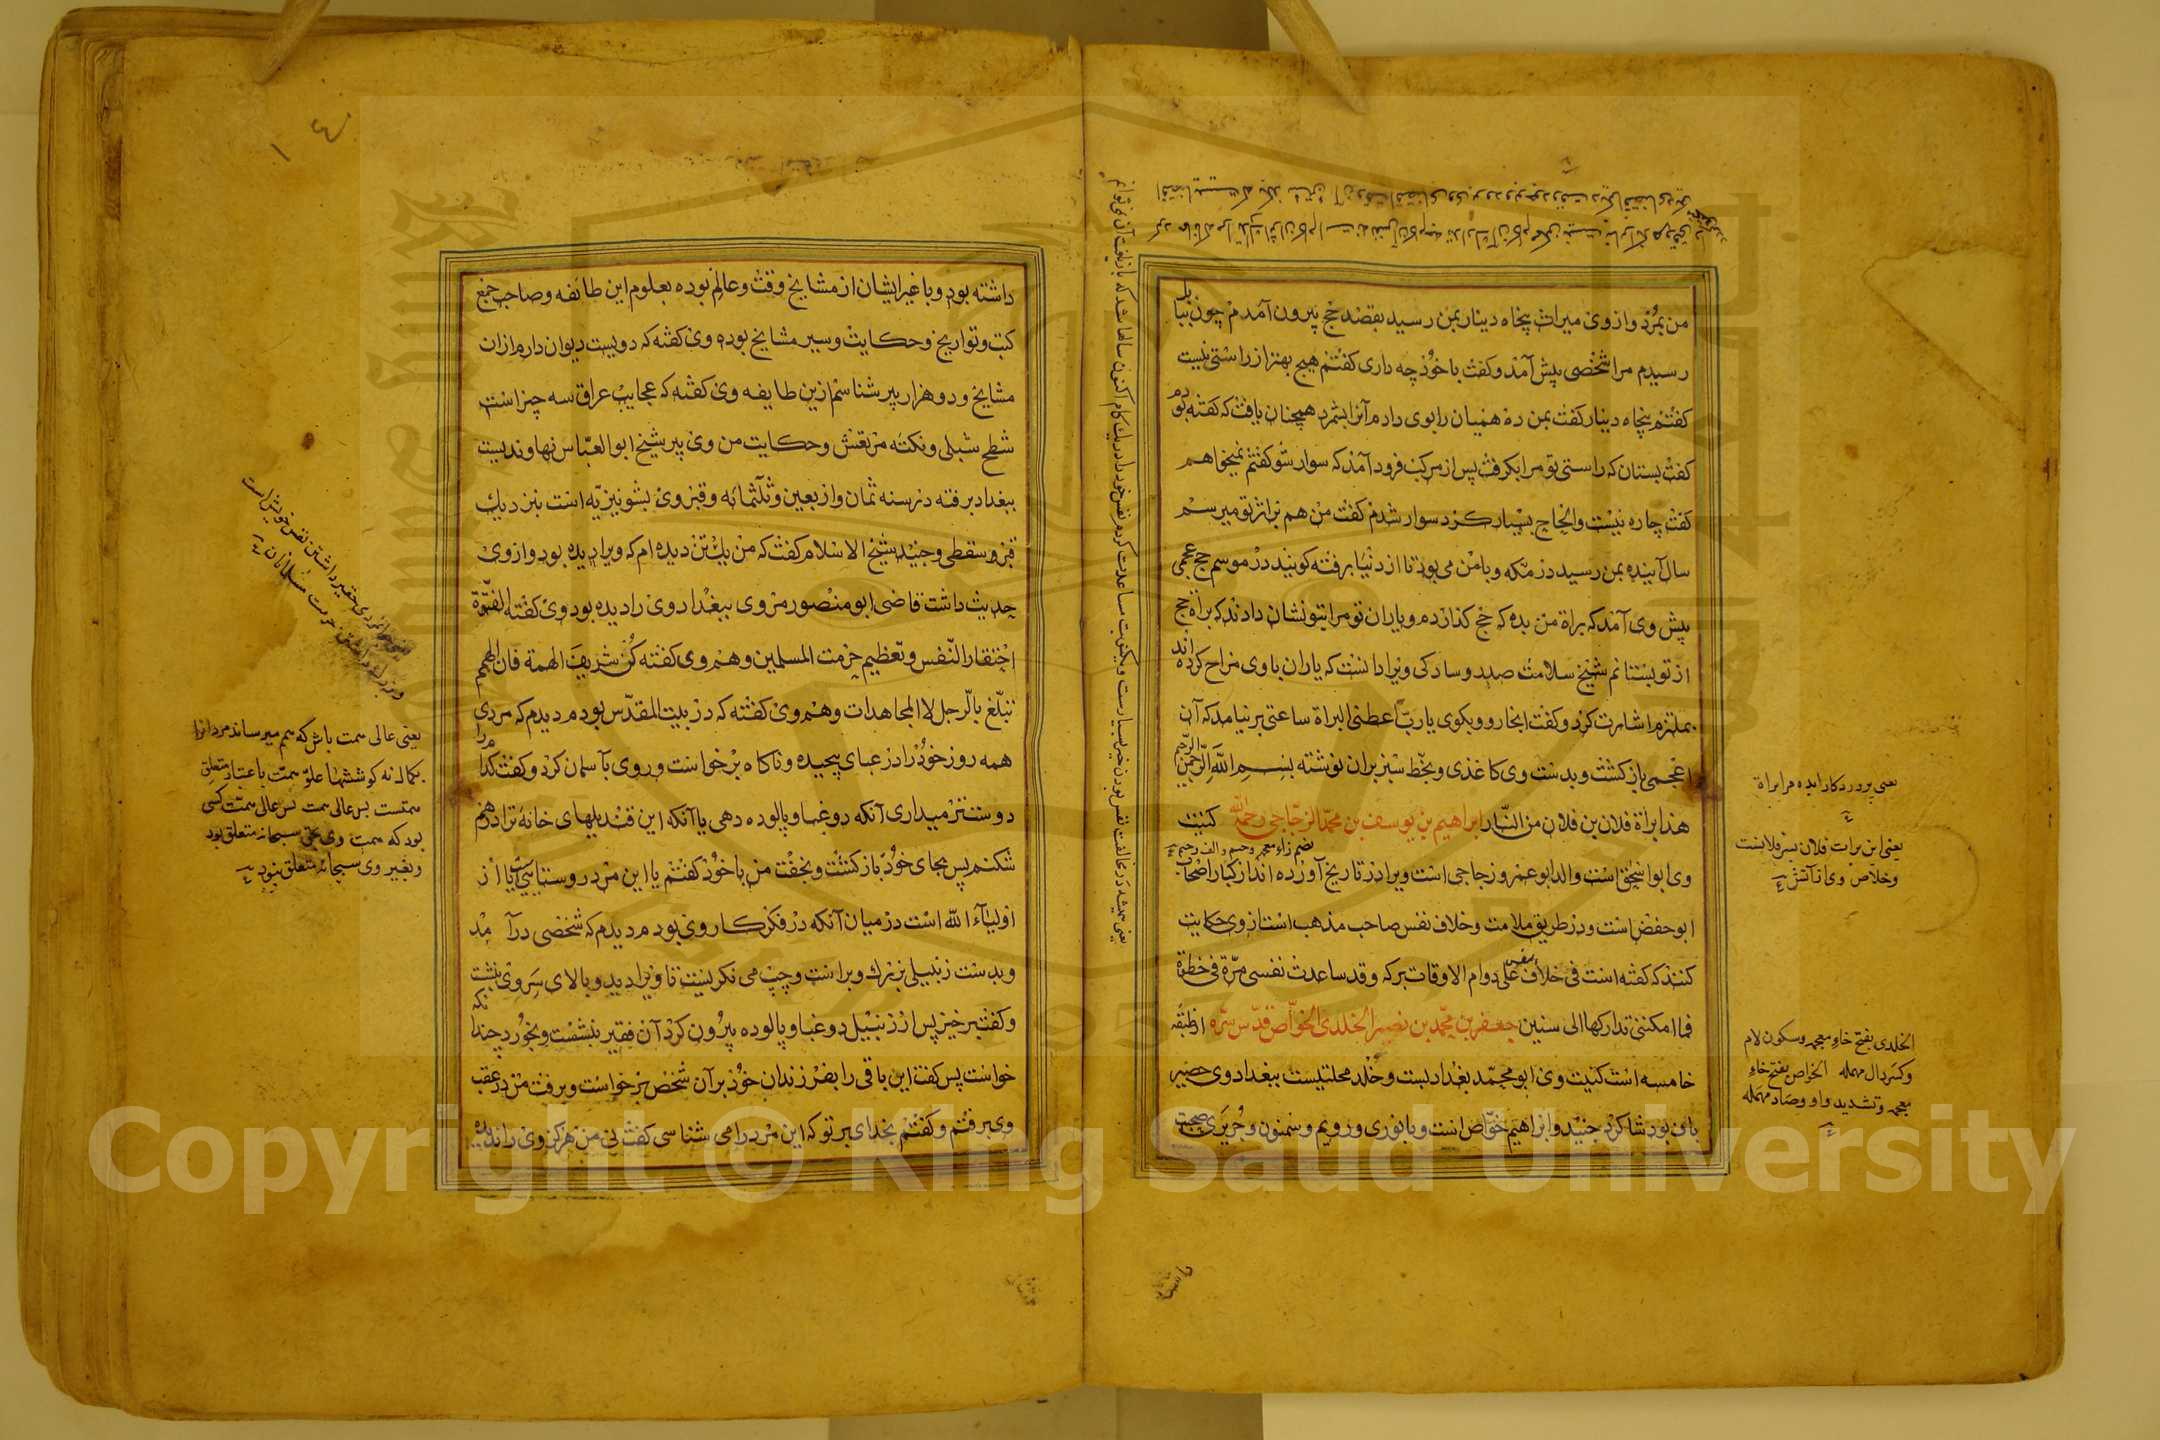 من بمرد و از وی میراث پنجاه دینار بمن رسید بقصد حج بیرون آمدم چون ببابل
رسیدم مرا شخصی پیش آمد و گفت با خود چه داری گفتم هیچ بهتر از راستی نیست
گفتم پنجاه دینار گفت بمن ده همیان را بوی دادم آنرا بشمرد همچنان یافت که گفته بودم
گفت بستان که راستی تو مرا بگرفت پس از مرکب فرود آمد که سوار شو گفتم نمیخواهم
گفت چاره نیست و الحاح بسیار کرد سوار شدم گفت من هم بر اثر تو میرسم
سال آینده بمن رسید در مکه و با من می بود تا از دنیا برفته گویند در موسم حج عجمی
پیش وی آمد که براة من بده که حج گذاردم و یاران تو مرا بتو نشان دادند که براة حج
از تو بستانم شیخ سلامت صدر و سادگی ویرا دانست که یاران با وی مزاح کرده اند
بملتزم اشارت کرد و گفت انجا رو و بگوی یا رب اعطنی البراة ساعتی برنیامد که آن
اعجمی بازگشت و بدست وی کاغذی و بخط سبز بران نوشته بسم الله الرحمن الرحیم
هذا براة فلان بن فلان من النار ابراهیم بن یوسف بن محمد الزجاجی رحمه الله کنیت
بضم زاء معجمه و جیم و الف و جیم
وی ابو اسحق است والد ابو عمرو زجاجی است ویرا در تاریخ آورده اند از کبار اصحاب
ابو حفض است و در طریق ملامت و خلاف نفس صاحب مذهب است از وی حکایت
کنند که گفته است فی خلاف نفس علی دوام الاوقات برکه و قد ساعدت نفسی مرة فی خطوة
فما امکننی تدارکها الی سنین جعفر بن محمد بن نصیر الخلدی الخواص قدس سره از طبقه
خامسه است کنیت وی ابو محمد بغدادیست و خلد محلتیست ببغداد وی حصیر
باف بود شاگرد جنید و ابراهیم خواص است و با نوری و رویم و سمنون و جریری صحبت
یعنی پروردکارا بده مرا براة
یعنی این برات فلان پسر فلانست
و خلاص وی از آتش
الخلدی بفتح خاء معجمه و سکون لام
و کسر دال مهمله الخواص بفتح خاء
معجمه و تشدید واو و صاد مهمله
داشته
١٤
داشته بود و با غیر ایشان از مشایخ وقت و عالم بوده بعلوم این طائفه و صاحب جمع
کتب و تواریخ و حکایت و سیر مشایخ بوده وی گفته که دویست دیوان دارم ازان
مشایخ و دو هزار پیر شناسم ازین طایفه وی گفته که عجایب عراق سه چیز است
شطح شبلی و نکته مرتعش و حکایت من وی پیر شیخ ابو العباس نهاوندیست
ببغداد برفته در سنه ثمان و اربعین و ثلثمائه و قبر وی بشونیزیه است بنزدیک
قبر سقطی و جنید شیخ الاسلام گفت که من یک تن دیده ام که ویرا دیده بود و از وی
حدیث داشت قاضی ابو منصور مروی ببغداد وی را دیده بود وی گفته الفتوة
احتقار النفس و تعظیم حرمت المسلمین و هم وی گفته کن شریف الهمة فان الهمم
تبلغ بالرجل لا المجاهدات و هم وی گفته که در بیت المقدس بودم دیدم که مردی
همه روز خود را در عبای پیچیده و ناکاه برخواست و روی بآسمان کرد و گفت کدام را
دوستتر میداری آنکه دوغبا و پالوده دهی یا آنکه این قندیلهای خانهٔ ترا درهم
شکنم پس بجای خود بازگشت و بخفت من با خود گفتم یا این مرد روستاییست یا از
اولیاء الله است در میان آنکه در فکر کار وی بودم دیدم که شخصی درآمد
و بدست زنبیلی بزرک و براست و چپ می نگریست تا ویرا دید و بالای سر وی بنشست
و گفت برخیز پس از زنبیل دوغبا و پالوده بیرون کرد آن فقیر بنشست و بخورد چندانکه
خواست پس گفت این باقی را بفرزندان خود بر آن شخص برخواست و برفت من در عقب
وی برفتم و گفتم بخدای بر تو که این مرد را می شناسی گفت نی من هرگز وی را ندیده
یعنی عالی همت باش که همم میرساند مردانرا
بکمال نه کوششها علو همت باعتبار متعلق
همتست پس عالی همت پس عالی همت کسی
بود که همت وی بحق سبحانه متعلق بود
و بغیر وی سبحانه متعلق نبود
Copyright © King Saud University